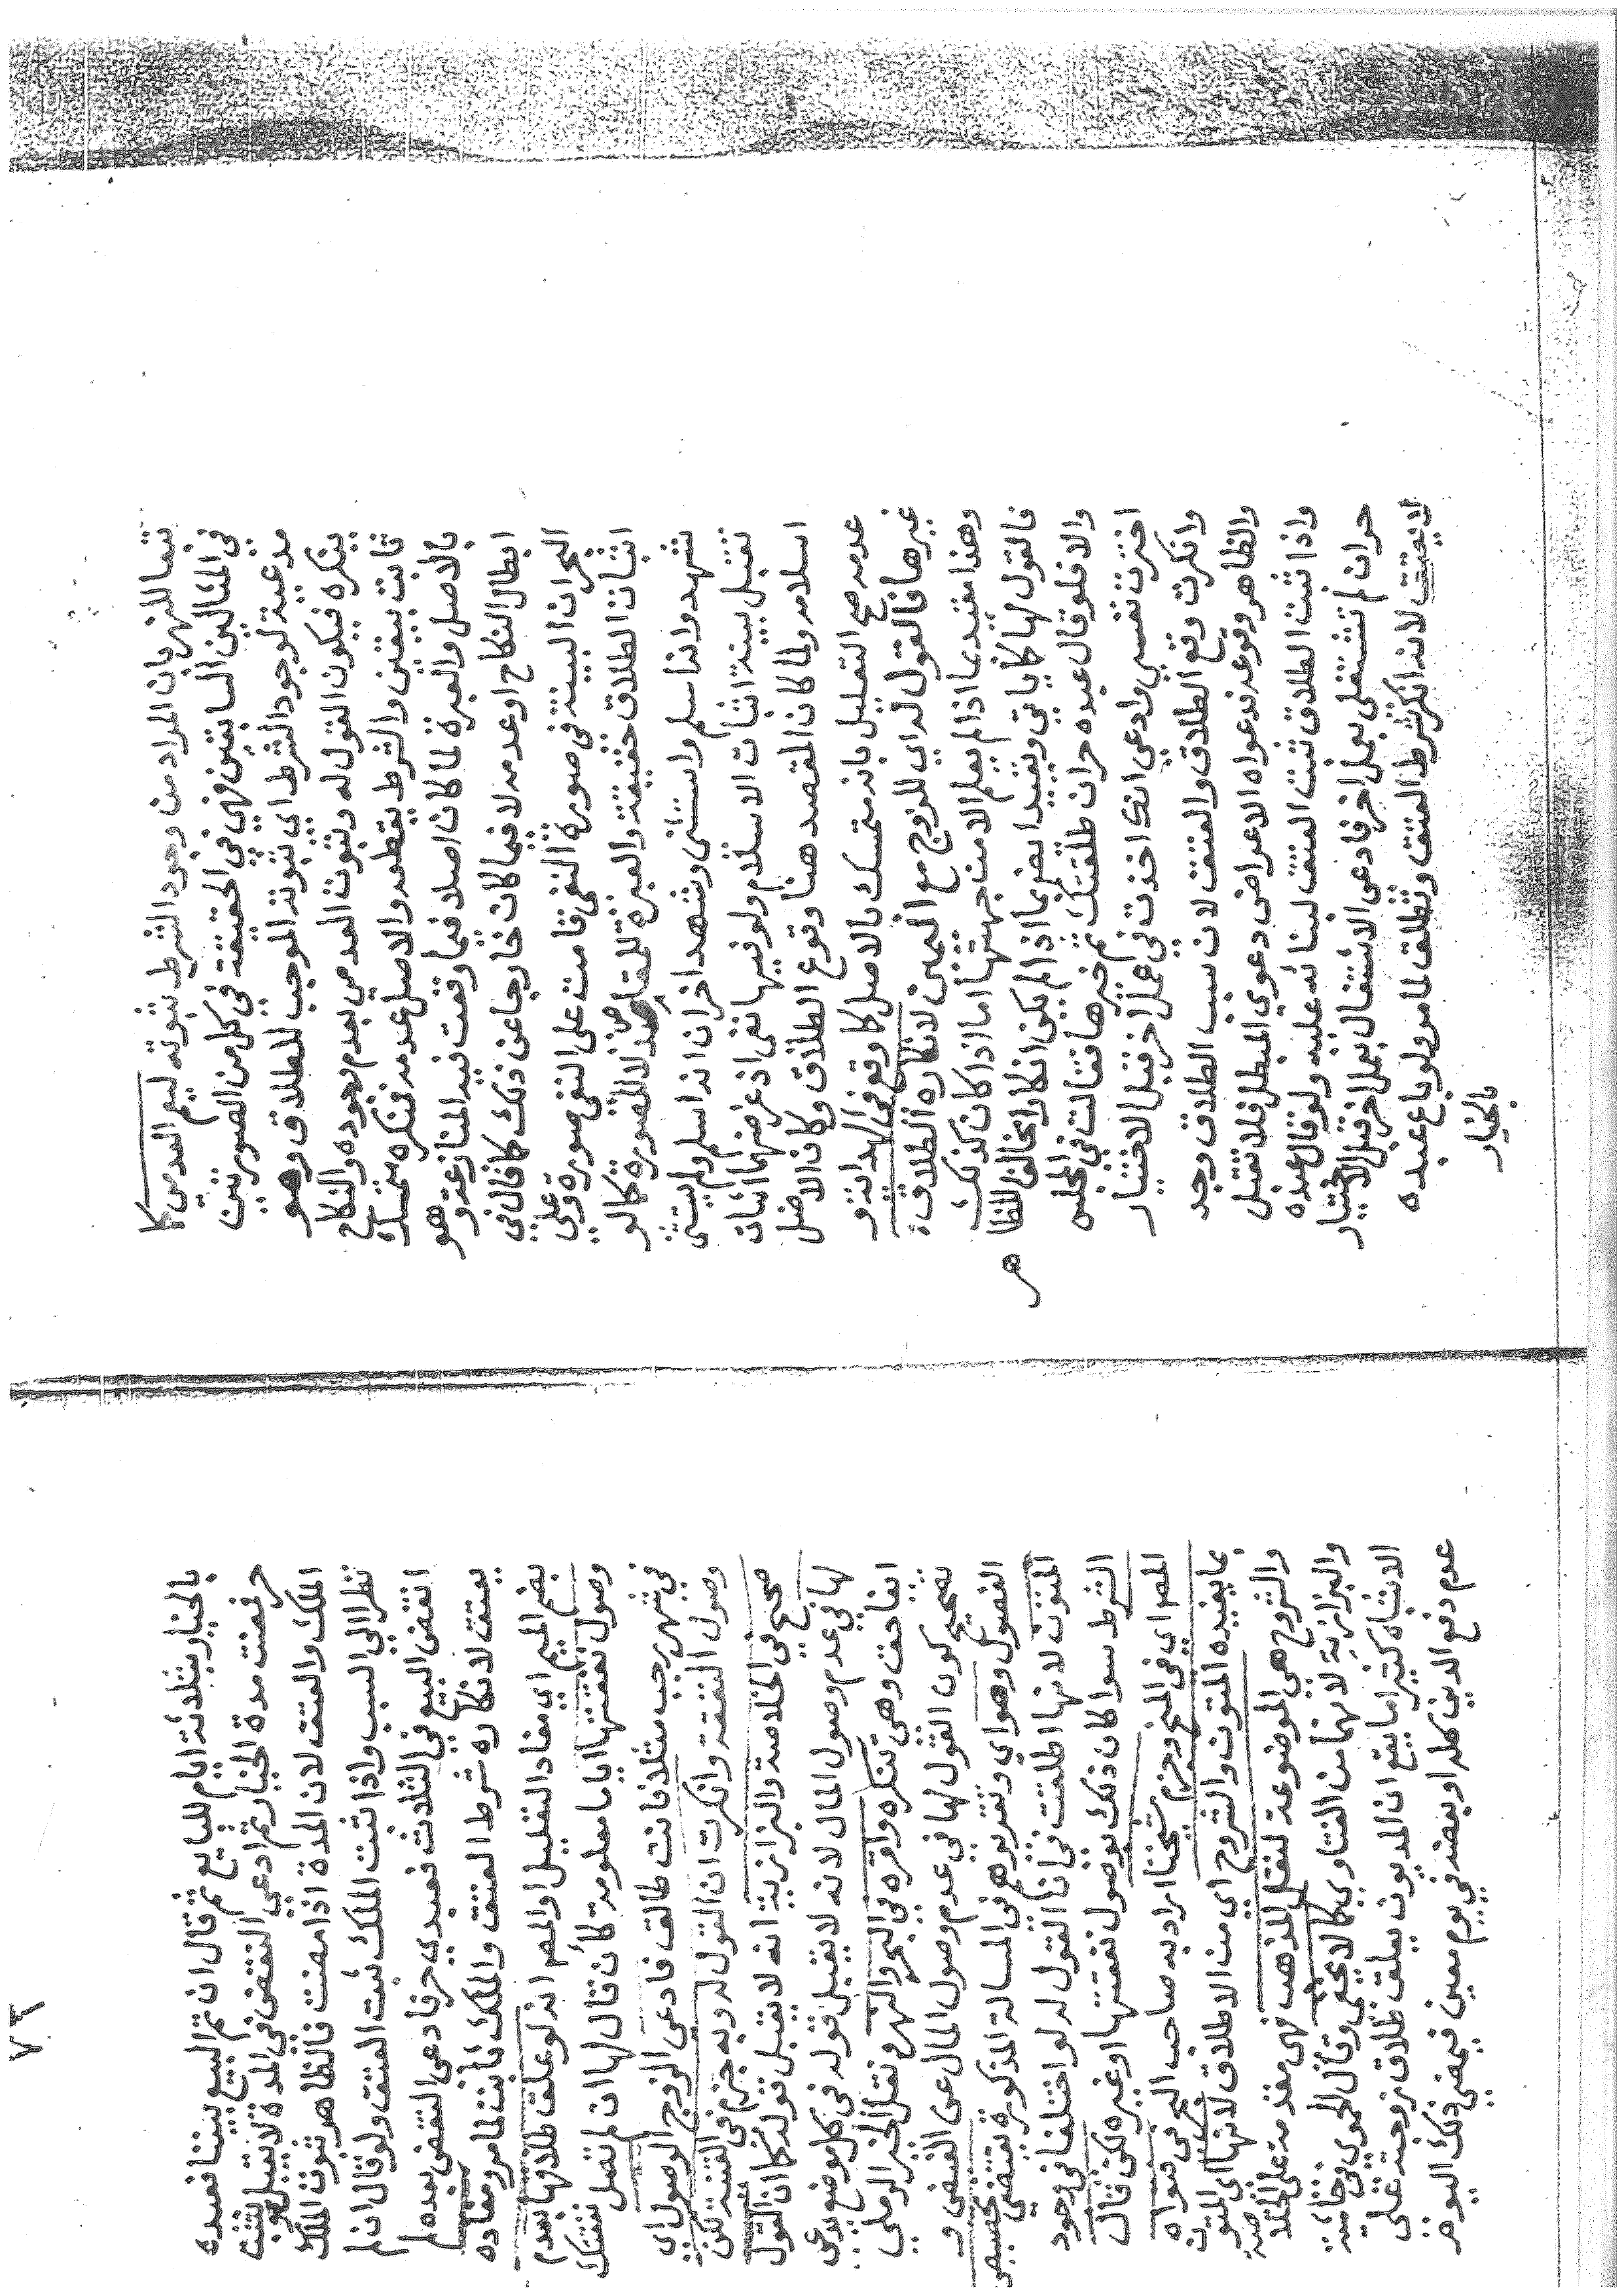 تبعا للنهر بان المراد من وجود الشرط ثبوته ليعم العدمى كما
فى المثالين السابقين فهى فى الحقيقة فى كل من الصورتين
مدعية لوجود الشرط اي ثبوته الموجب للطلاق وهو
ينكره فيكون القول له وثبوت العدمي بعدم وجوده والنكاح
ثابت بيقين والشرط يقطعه والاصل عدمه فمنكره متمسك
بالاصل والعبرة لما كان اصلا فيما وقعت فيه المنازعة وهو
ابطال النكاح او عدمه لا فيما كان خارجا عن ذلك كما قال في
البحر ان البينة فى صورة النفى قامت على النفى صورة وعلى
اثبات الطلاق حقيقة والعبرة للمقاصد لا للصورة كما لو
شهد وانه اسلم واستثنى وشهد اخران انه اسلم ولم يستثن
تقبل بينة اثبات الاسلام ولو فيها نفى اذ غرضها اثبات
اسلامه ولما كان المقصد هنا وقوع الطلاق وكان الاصل
عدمه صح التعليل بانه متمسك بالاصل كما وقع فى الهداية و
غيرها فالقول له اي للزوج مع اليمين لانكاره الطلاق
وهذا مقيد بما اذا لم يعلم الا من جهتها اما اذا كان كذلك
فالقول لها كما ياتي وتقييد ايضا بما اذا لم يكن انكارا يخالف الظا
هر
والا فلو قال عبده حر ان طلقتك ثم خيرها فقالت فى المجلس
اخترت نفسي وادعي انك اخذت في عمل اخر قبل الاختيار
وانكرت وقع الطلاق والعتق لان سبب الطلاق وجد
والظاهر وقوعه فدعواه الاعراض دعوي المبطل فلا تقبل
واذا ثبت الطلاق ثبت العتق لبنائه عليه ولو قال عبده
حر ان لم تشتغلى بعمل اخر فادعى الاشتغال بعمل اخر قبل الاختيار
لا يعتق لانه انكر شرط العتق وتطلق لما مر ولو باع عبده
بالخيار
٧٢
بالخيار ثلاثة ايام للبايع ثم قال ان تم البيع بيننا فعبده
حر فمضت مدة الخيار ثم ادعى النقض فى المدة لا يقبل لثبوت
الملك والعتق لان المدة اذا مضت فالظاهر ثبوت الملك
نظرا الي السبب واذا ثبت الملك ثبت العتق ولو قال ان لم
انقض البيع في الثلاث فعبدي حر فادعى النقض بعده لم
يعتق لانكاره شرط العتق والملك ثابت لما مر ومفاده
بضم الميم اي مفاد التعليل او المصـ انه لو علق طلاقها بعدم
وصول نفقتها اياما معلومة كأن قال لها ان لم تصل نفقتك
في شهر رجب مثلا فانت طالق فادعى الزوج الوصول اي
وصول النفقة وانكرت ان القول له وبه جزم فى القنية لكن
صحح في الخلاصة والبزازية انه لا يقبل قوله كما ان القول
لها في عدم وصول المال لانه لا يقبل قوله فى كل موضع يدعى
ايفا حق وهى تنكره واقره في البحر والنهر ونقل الخير الرملي
تصحيح كون القول لها فى عدم وصول المال عن الفيض و
الفصول وهو اي وتقريرهم فى المسالة المذكورة يقتضي تخصيص
المتون لانها اطلقت فى ان القول له لو اختلفا فى وجود
الشرط سوا كان ذلك بوصول نفقتها او غيره لكن قال
المصـ اي فى المنح وجزم شيخنا اراد به صاحب البحر فى فتواه
بما يفيده المتون والشروح اي من الاطلاق لانها اي المتون
والشروح هى الموضوعة لنقل المذهب فهى مقدمة على الخلاصة
والبزازية لانهما من الفتاوي كما لا يخفى وقال الحموي وفى حاشية
الاشباه كثيرا ما يقع ان المديون يعلق طلاق زوجته على
عدم دفع الدين كله او بعضه في يوم معين فيمضي ذلك اليوم